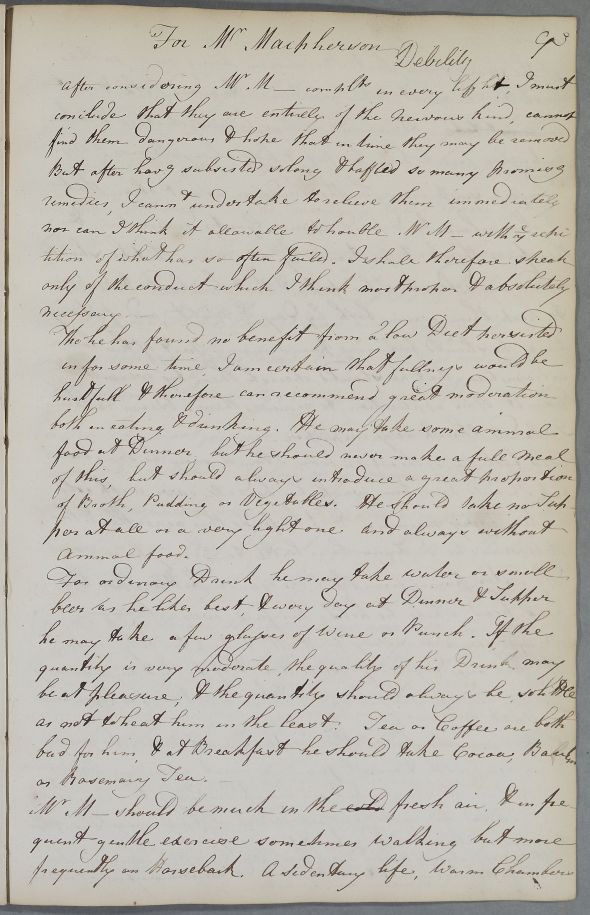 For Mr Macpherson
Debility
After considering Mr M— complts in every light, I must
conclude that they are entirely of the nervous kind, cannot
find them dangerous & hope that in time they may be removed
But after havg subsisted so long & baffled so many promisg
remedies, I cannt undertake to relieve them immediately
nor can I think it allowable to trouble Mr M— with repi-
tition of what has so often failed. I shall therefore speak
only of the conduct which I think most proper & absolutely
necessary
Tho he has found no benefit from a low Diet persisted
in for some time I am certain that fullness would be
hurtfull & therefore can recommend great moderation
both in eating & drinking. He may take some animal
food at Dinner but he should never make a full meal
of this, but should always introduce a great proportion
of Broth, Pudding or Vegetables. He should take no Sup-
per at all or a very light one and always without
Animal food.
For ordinary Drink he may take water or small
beer as he likes best & every day at Dinner & Supper
he may take a few glasses of Wine or Punch. If the
quantity is very moderate, the quality of his Drink may
be at pleasure, & the quantity should always be so little
as not to heat him in the least. Tea or Coffee are both
bad for him, & at Breakfast he should take Cocoa,
or Rosemary Tea.
Mr M— should be much in the cold fresh air, & in fre-
quent gentle exercise sometimes walking but more
frequently on Horseback. A sedentary life, warm Chambers